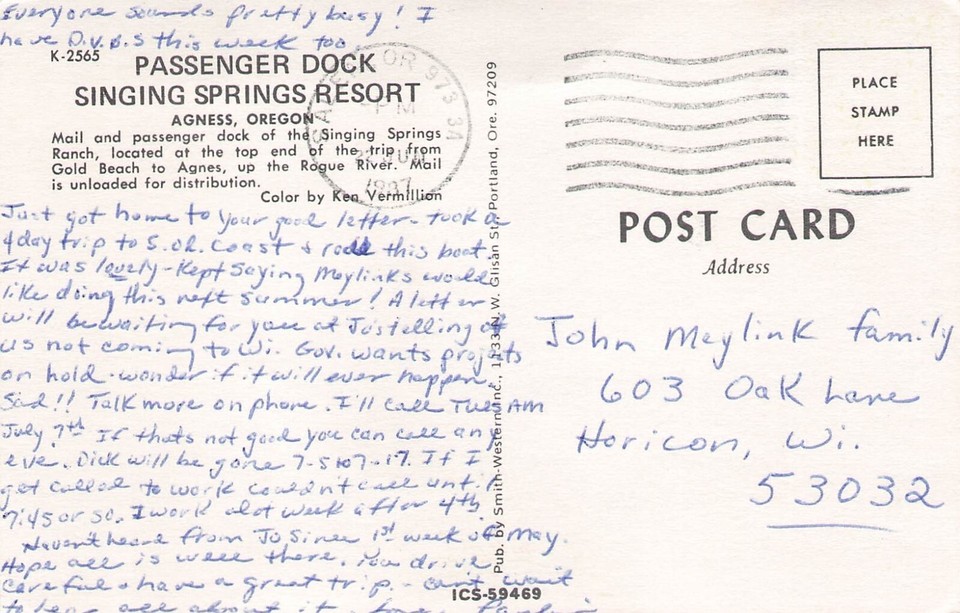 Everyone sounds pretty busy! I
have D.V.B.S this week too.
K-2565
PASSENGER DOCK
SINGING SPRINGS RESORT
AGNESS, OREGON
Mail and passenger dock of the Singing Springs
Ranch, located at the top end of the trip from
Gold Beach to Agnes, up the Rogue River. Mail
is unloaded for distribution.
Color by Ken Vermillion
Just got home to your good letter - took a
4 day trip to S. OR. Coast & rode this boat.
It was lovely - Kept saying Meylinks would
like doing this next summer! A letter
will be waiting for you at Jo's telling of
us not coming to Wi. Gov. wants projets
on hold - wonder if it will ever happen.
Sad!! Talk more on phone. I'll call Tues AM
July 7th If thats not good you can call any
eve. Dick will be gone 7-5 to 7-17. If I
get called to work couldn't call until
7:45 or so. I work alot week after 4th.
Haven't heard from Jo since 1st week of May.
Hope all is well there. You drive
careful & have a great trip - can't wait
to hear all about it. Love,
ICS-59469
Pub. by Smith-Western Inc., 1133 N.W. Glisan St., Portland, Ore. 97209
SALEM OR 973 3A
PM
1987
PLACE
STAMP
HERE
POST CARD
Address
John Meylink family
603 Oak Lane
Horicon, Wi.
53032